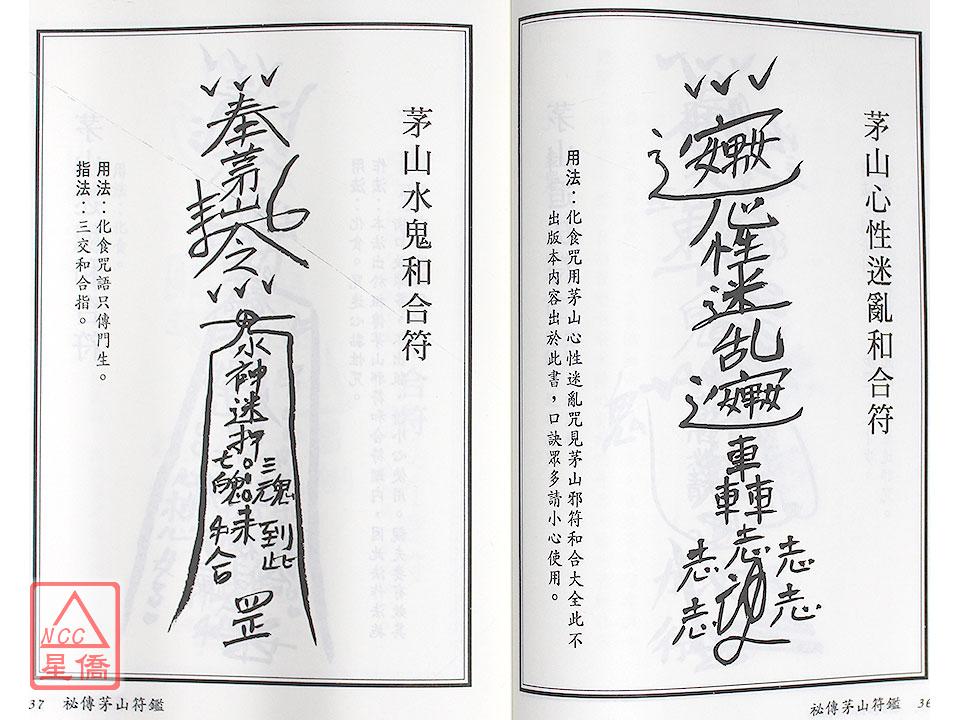 茅山心性迷亂和合符
用法：化食咒用茅山心性迷亂咒見茅山邪符和合大全此不
出版本內容出於此書，口訣眾多請小心使用。
心性迷乱
車
車車
志
志
志
志
志
祕傳茅山符鑑
36
茅山水鬼和合符
奉茅山令
神迷
三魂
到此
七魄
來
合
罡
用法：化食咒語只傳門生。
指法：三交和合指。
37
祕傳茅山符鑑
NCC
星僑